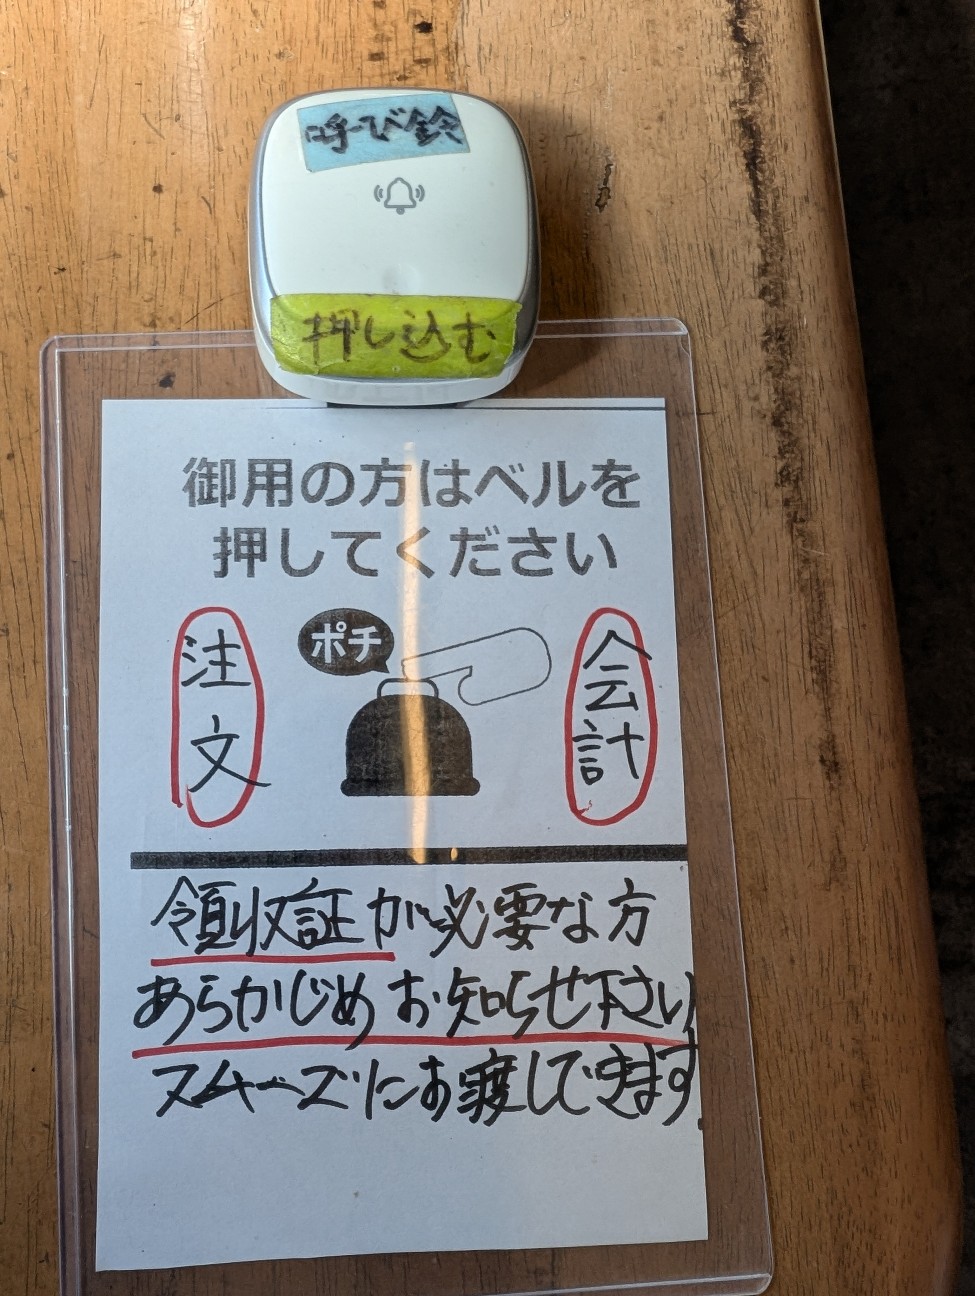 呼び鈴
押し込む
御用の方はベルを
押してください
注文
ポチ
会計
領収証が必要な方
あらかじめお知らせ下さい
スムーズにお渡しできます